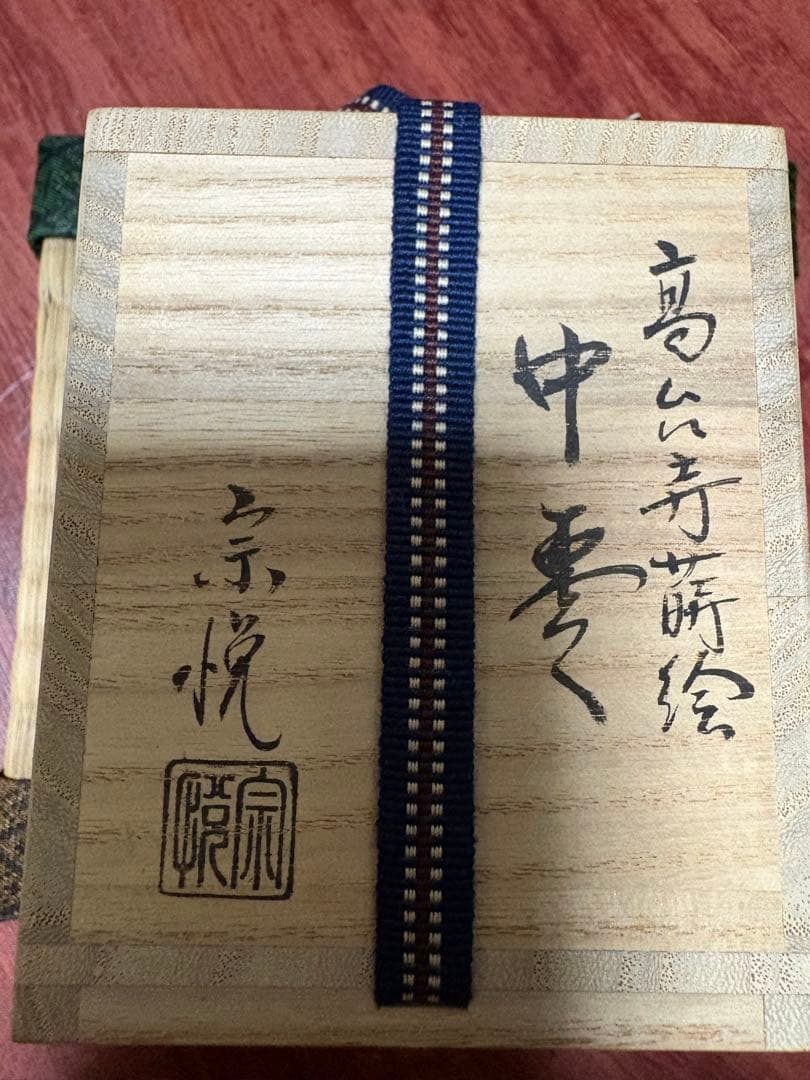 高台寺蒔絵
中棗
宗悦
宗悦